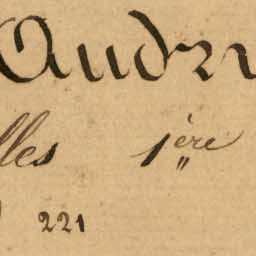 Audri
lles 1ère
221